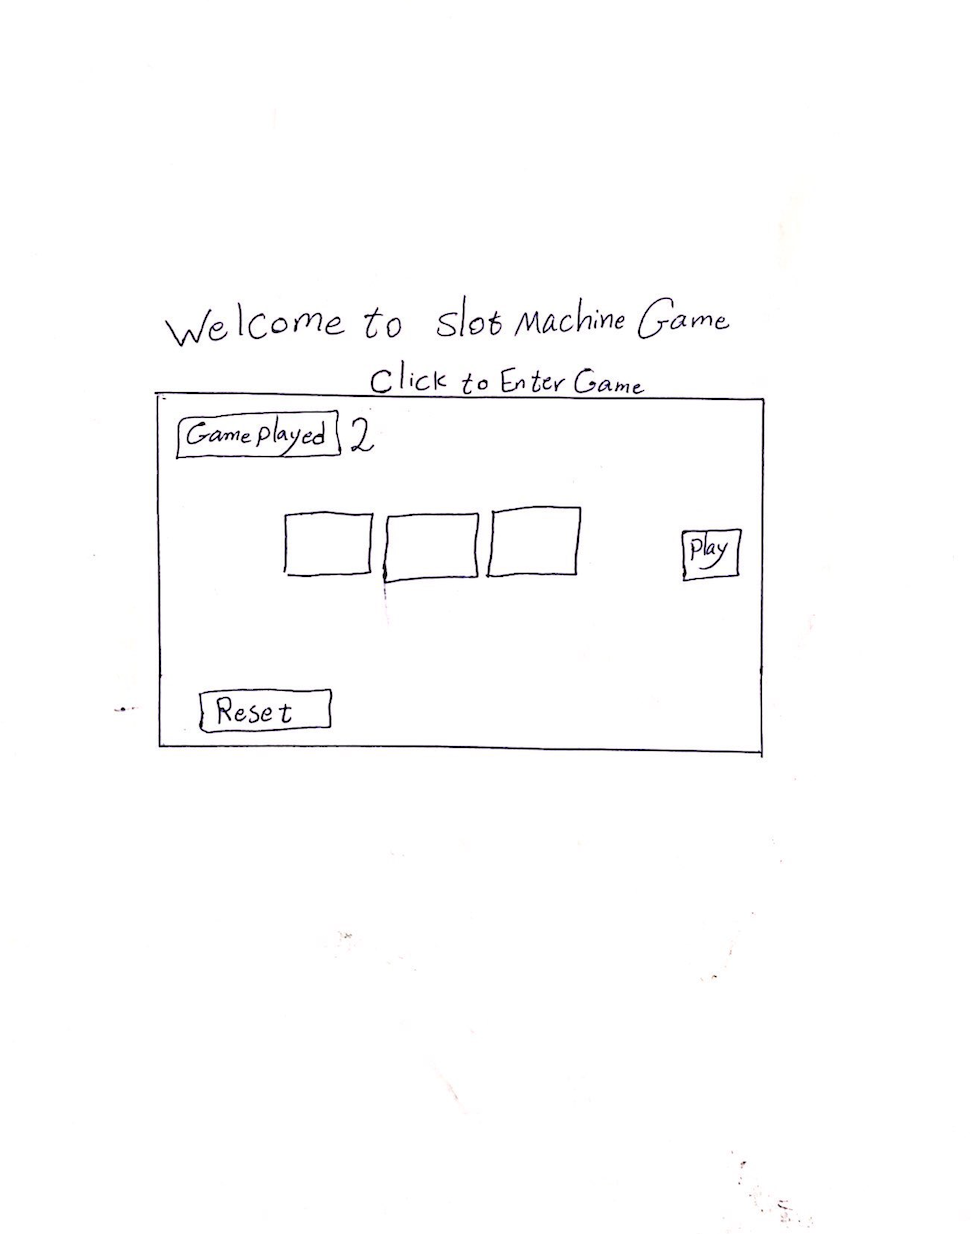 Welcome to Slot Machine Game
Click to Enter Game
Game played 2
Play
Reset